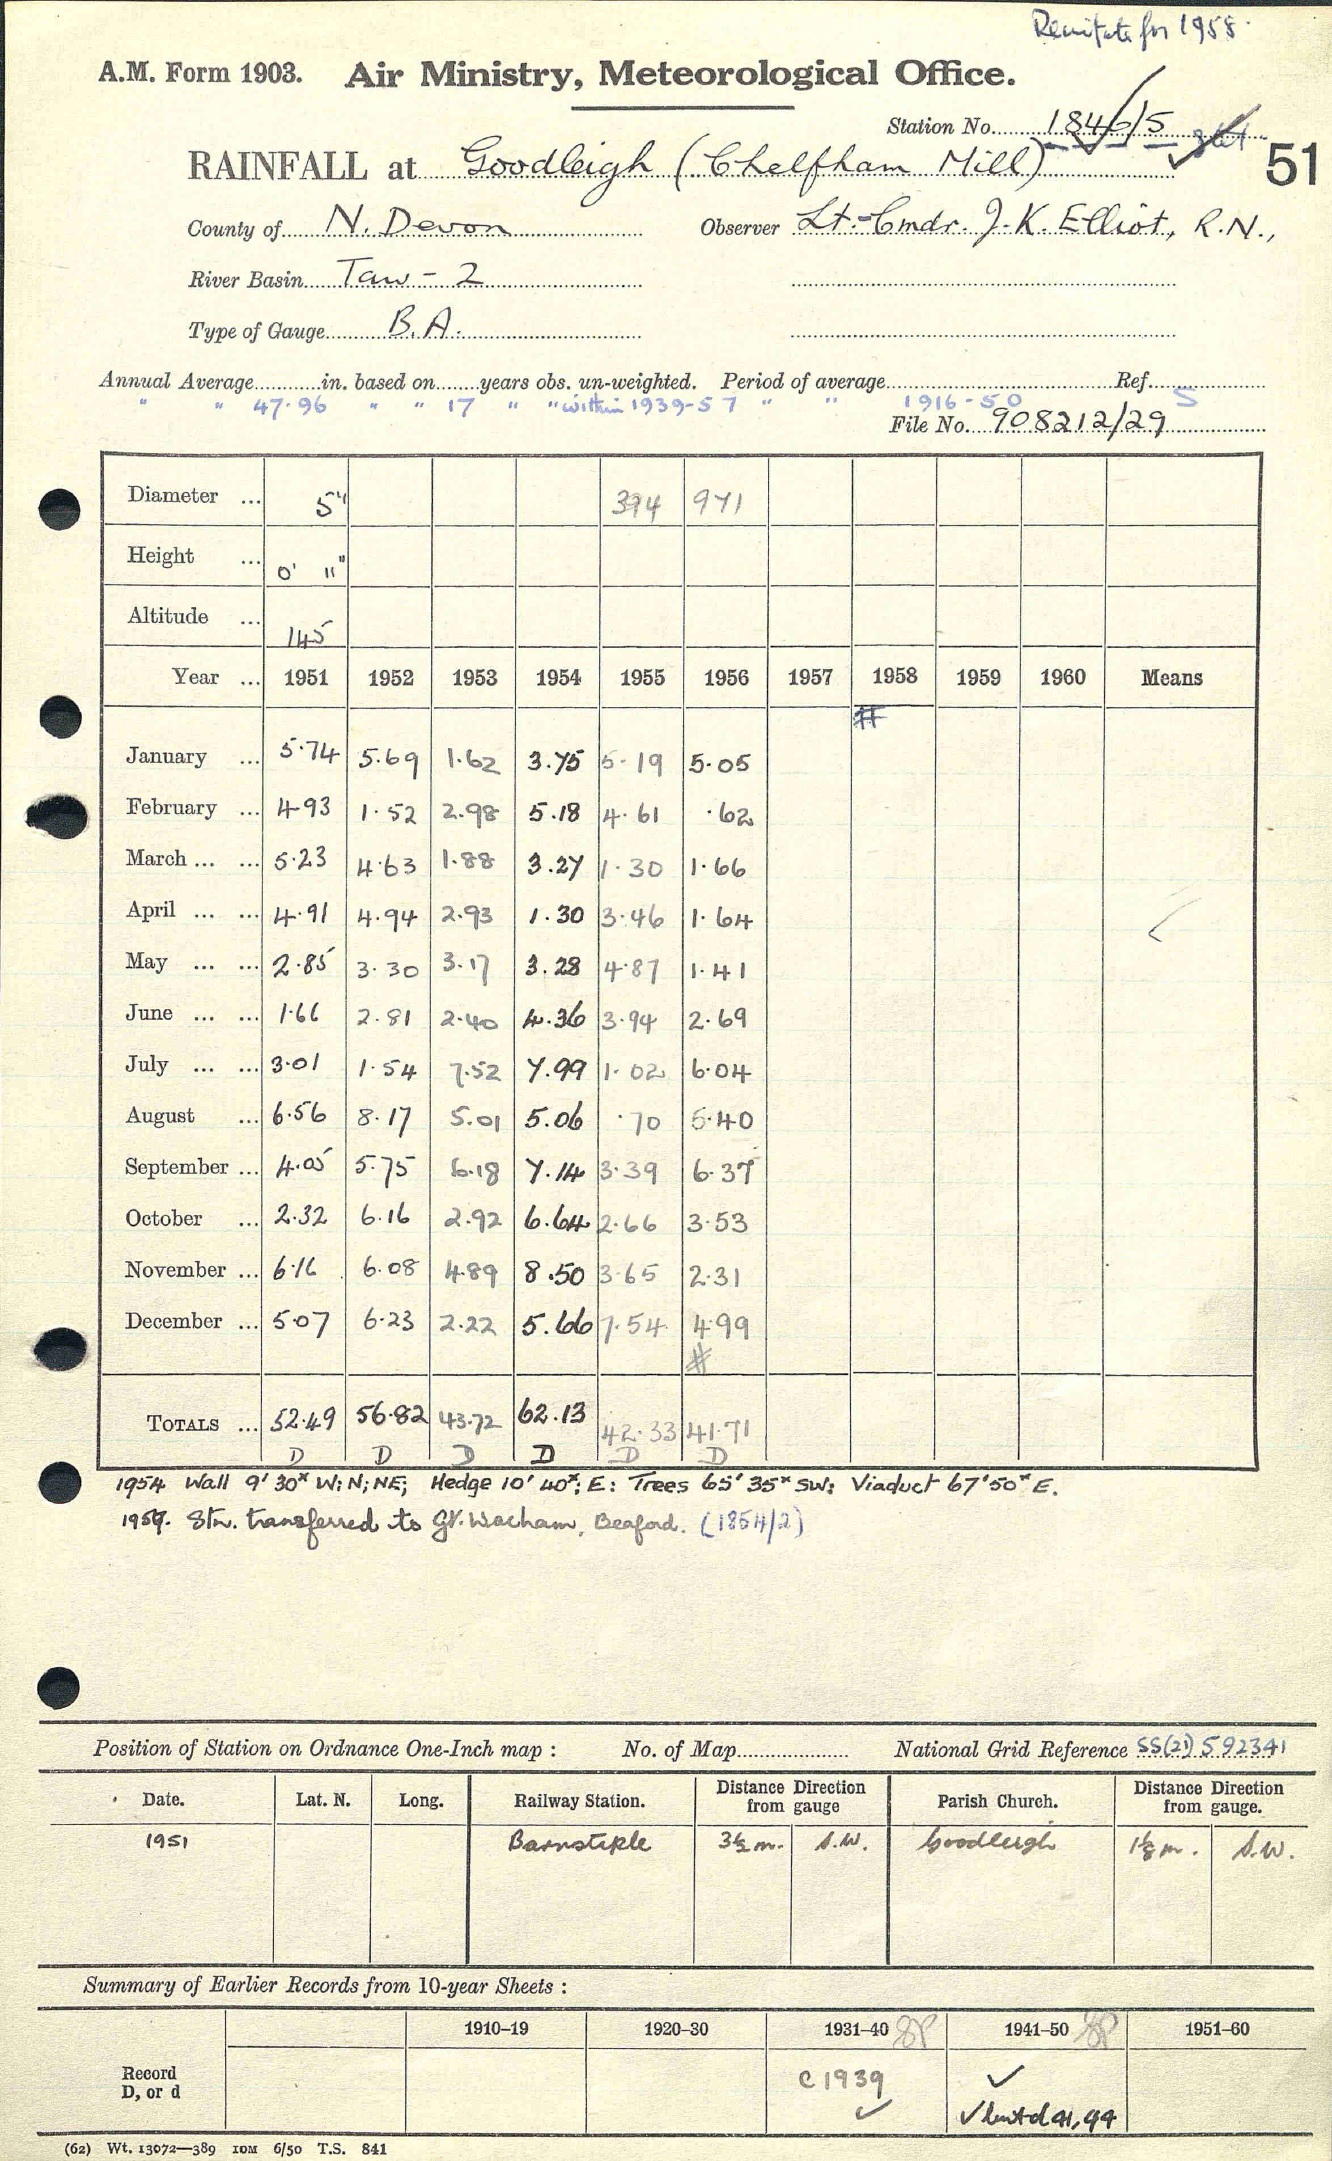 Remitate for 1958.
A.M. Form 1903. Air Ministry, Meteorological Office.
Station No. 1846/5
RAINFALL at Goodleigh (Chelfham Mill)
51
County of N. Devon Observer Lt.-Cmdr. J.K. Elliot, R.N.,
River Basin Taw - 2
Type of Gauge B.A.
Annual Average in. based on years obs. un-weighted. Period of average Ref.
" " 47.96 " " 17 " " within 1939-57 " " 1916-50 S
File No. 908212/29
Diameter ... 5" 394 971
Height ... 0' 11"
Altitude ... 145
Year ... 1951 1952 1953 1954 1955 1956 1957 1958 1959 1960 Means
#
January ... 5.74 5.69 1.62 3.75 5.19 5.05
February ... 4.93 1.52 2.98 5.18 4.61 .62
March ... ... 5.23 4.63 1.88 3.27 1.30 1.66
April ... ... 4.91 4.94 2.93 1.30 3.46 1.64
May ... ... 2.85 3.30 3.17 3.28 4.87 1.41
June ... ... 1.66 2.81 2.40 4.36 3.94 2.69
July ... ... 3.01 1.54 7.52 7.99 1.02 6.04
August ... 6.56 8.17 5.01 5.06 .70 5.40
September ... 4.05 5.75 6.18 7.14 3.39 6.37
October ... 2.32 6.16 2.92 6.64 2.66 3.53
November ... 6.16 6.08 4.89 8.50 3.65 2.31
December ... 5.07 6.23 2.22 5.66 7.54 4.99
#
TOTALS ... 52.49 56.82 43.72 62.13 42.33 41.71
D D D D D D
1954 Wall 9' 30° W; N; NE; Hedge 10' 40°; E: Trees 65' 35° SW: Viaduct 67' 50° E.
1957. Stn. transferred to Gt. Wacham, Beaford. (1854/2)
Position of Station on Ordnance One-Inch map : No. of Map National Grid Reference SS(21) 592341
Date. Lat. N. Long. Railway Station. Distance Direction from gauge Parish Church. Distance Direction from gauge.
1951 Barnstaple 3½ m. S.W. Goodleigh 1⅛ m. S.W.
Summary of Earlier Records from 10-year Sheets :
1910–19 1920–30 1931–40 1941–50 1951–60
Record D, or d c 1939 ✓ ✓
✓ but d 41, 44
(62) Wt. 13072—389 10M 6/50 T.S. 841